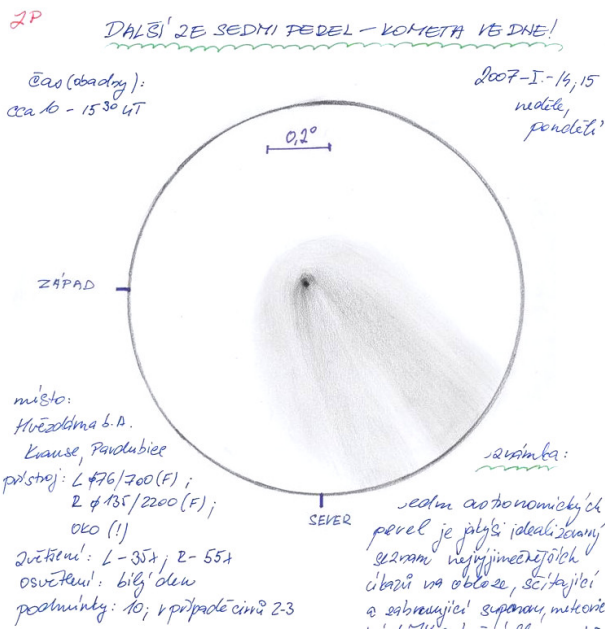 ZP
DALŠÍ ZE SEDMI PEREL – KOMETA VE DNE!
čas (obadny):
cca 10 – 15³⁰ UT
2007–I.–14,15
neděle,
pondělí
0,2°
ZÁPAD
místo:
Hvězdárna b. A.
Krause, Pardubice
přístroj: L φ76/700 (F);
R φ135/2200 (F);
OKO (!)
SEVER
zvětšení: L–35x; R–55x
osvětlení: bílý den
podmínky: 10; v případě cirrů 2-3
známka:
sedm astronomických
perel je jakýsi idealizovaný
seznam nejvýjimečnějších
úkazů na obloze, sčítající
a zahrnující supernovu, meteoric